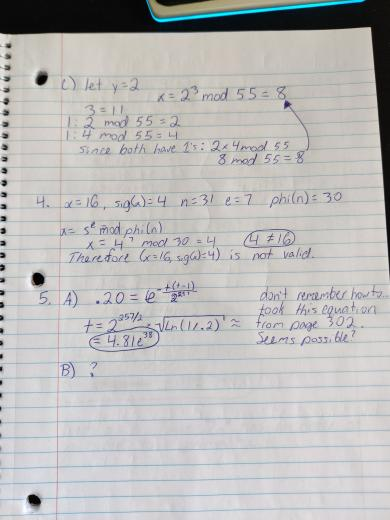 c) let y=2
x = 2³ mod 55 = 8
3 = 11
1: 2 mod 55 = 2
1: 4 mod 55 = 4
Since both have 1's: 2x4 mod 55
8 mod 55 = 8
4. x=16, sig(x)=4 n=31 e=7 phi(n)=30
x = sᵉ mod phi(n)
x = 4⁷ mod 30 = 4 4 ≠ 16
Therefore (x=16, sig(x)=4) is not valid.
5. A) .20 = e
don't remember how to.
t = 2^257/2 · √Ln(1/.2) ≈
took this equation
= 4.81e³⁸
from page 302.
Seems possible?
B) ?